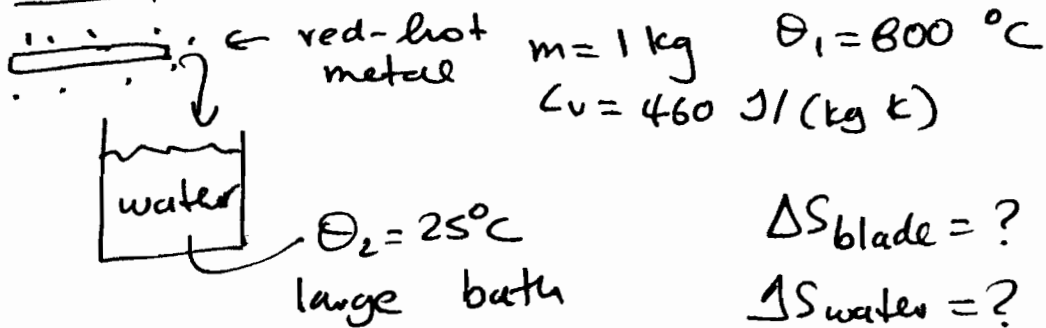 ← red-hot metal
m = 1 kg θ₁ = 800 °C
Cv = 460 J/(kg K)
water
θ₂ = 25°C
large bath
ΔS blade = ?
ΔS water = ?